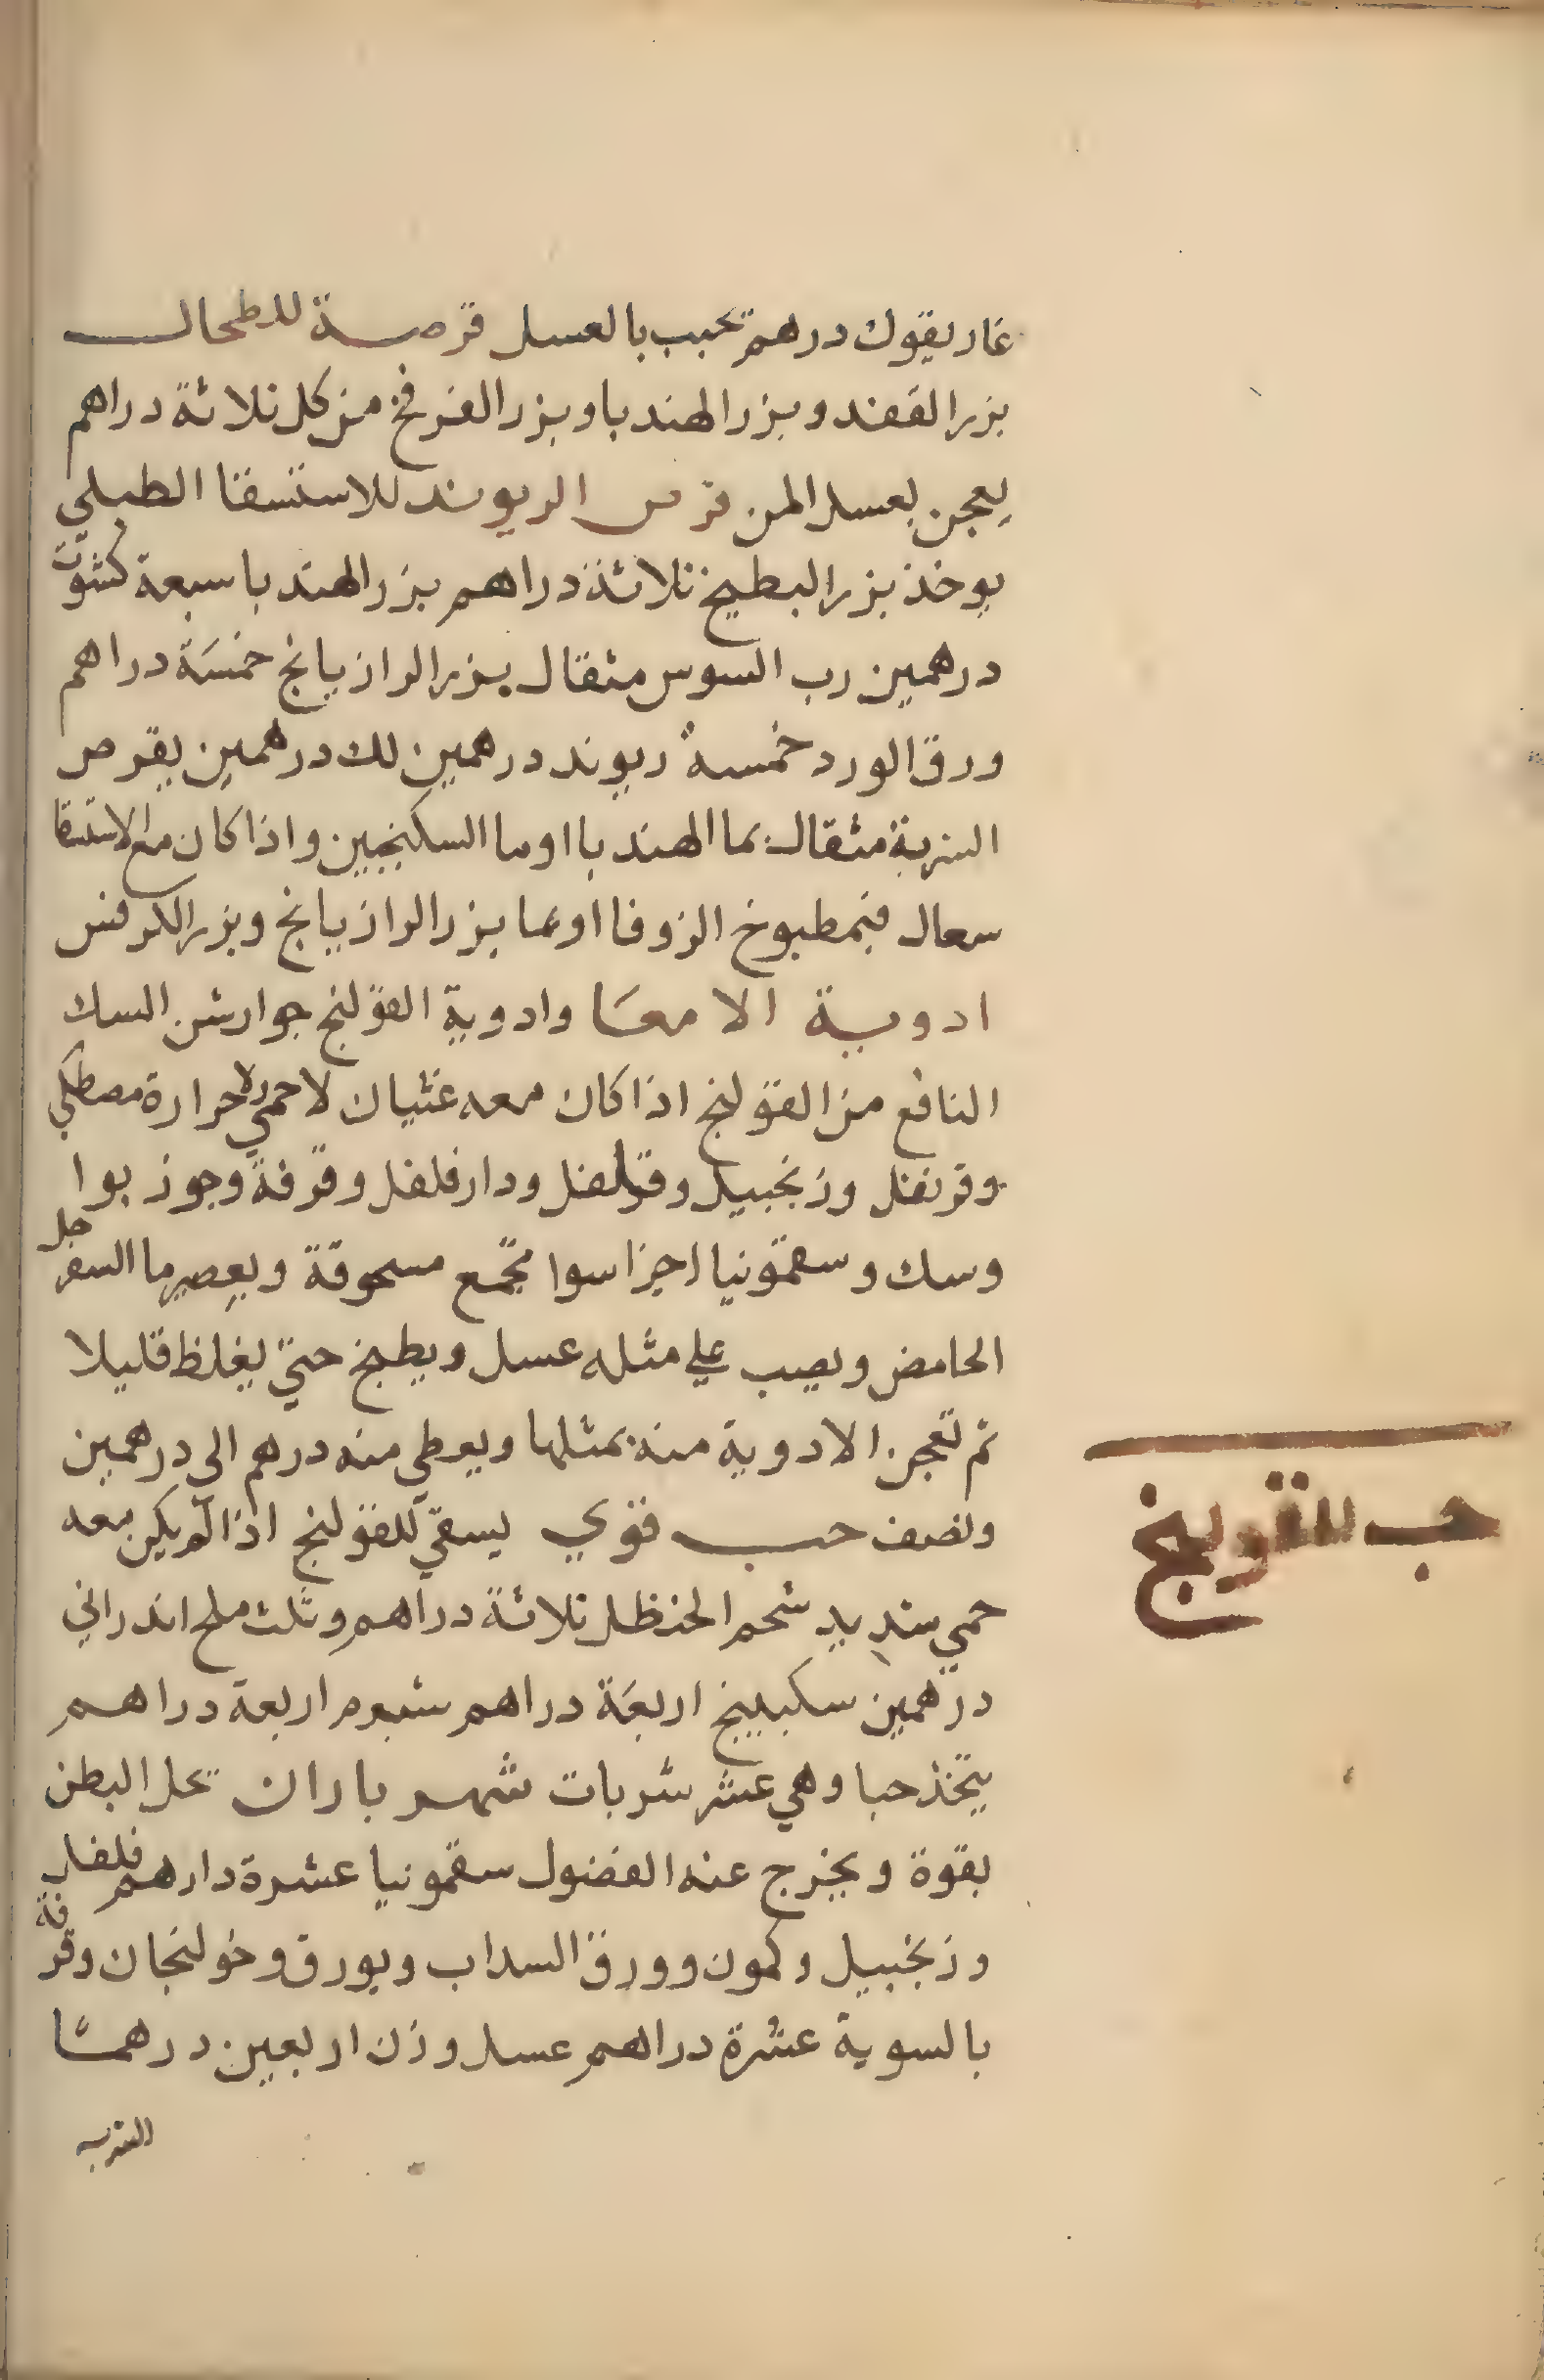 غاريقون درهم تحبب بالعسل قرصة للطحال
بزر القفند وبزر الهندبا وبزر الفرفخ من كل ثلاثة دراهم
يعجن بعسل المن قرص الريوند للاستسقا الطبلي
يوخذ بزر البطيخ ثلاثة دراهم بزر الهندبا سبعة كشوت
درهمين رب السوس مثقال بزر الرازيانج خمسة دراهم
ورق الورد خمسة ريوند درهمين لك درهمين يقرص
الشربة مثقال بما الهندبا او ما السكنجبين واذا كان مع الاستسقا
سعال فبمطبوخ الزوفا او بما بزر الرازيانج وبزر الكرفس
ادوية الامعا وادوية القولنج جوارشن السك
النافع من القولنج اذا كان معه غثيان لا حمي ولا حرارة مصطكي
وقرنفل وزنجبيل وفلفل ودارفلفل وقرفة وجوز بوا
وسك وسقمونيا اجزا سوا تجمع مسحوقة ويعصر ما السفرجل
الحامض ويصب علي مثله عسل ويطبخ حتي يغلظ قليلا
ثم تعجن الادوية منه بمثلها ويعطي منه درهم الي درهمين
ونصف حب قوي يسقي للقولنج اذا لم يكن معه
حمي شديد شحم الحنظل ثلاثة دراهم وثلث ملح اندراني
درهمين سكبينج اربعة دراهم شبرم اربعة دراهم
يتخذ حبا وهي عشر شربات شهرباران تحل البطن
بقوة ويخرج عنه الفضول سقمونيا عشرة دارهم فلفل
وزنجبيل وكمون وورق السداب وبورق وخولنجان وقرفة
بالسوية عشرة دراهم عسل وزن اربعين درهمًا
الشربه
حب للقولنج